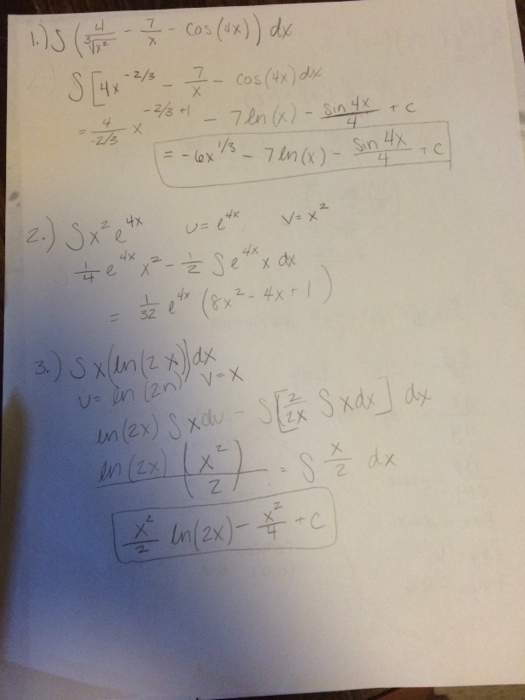 1.) ∫ (4/∛x² - 7/x - cos(4x)) dx
∫ [4x^-2/3 - 7/x - cos(4x) dx
= 4/-2/3 x^-2/3+1 - 7ln(x) - sin4x/4 + C
= -6x^1/3 - 7ln(x) - Sin4x/4 + C
2.) ∫x²e^4x u=e^4x v=x²
1/4 e^4x x² - 1/2 ∫e^4x x dx
= 1/32 e^4x (8x² - 4x + 1)
3.) ∫x(ln(2x))dx
u= ln(2n) v=x
ln(2x) ∫xdu - ∫[2/2x ∫xdx] dx
ln(2x) (x²/2) = ∫ x/2 dx
x²/2 ln(2x) - x²/4 + C